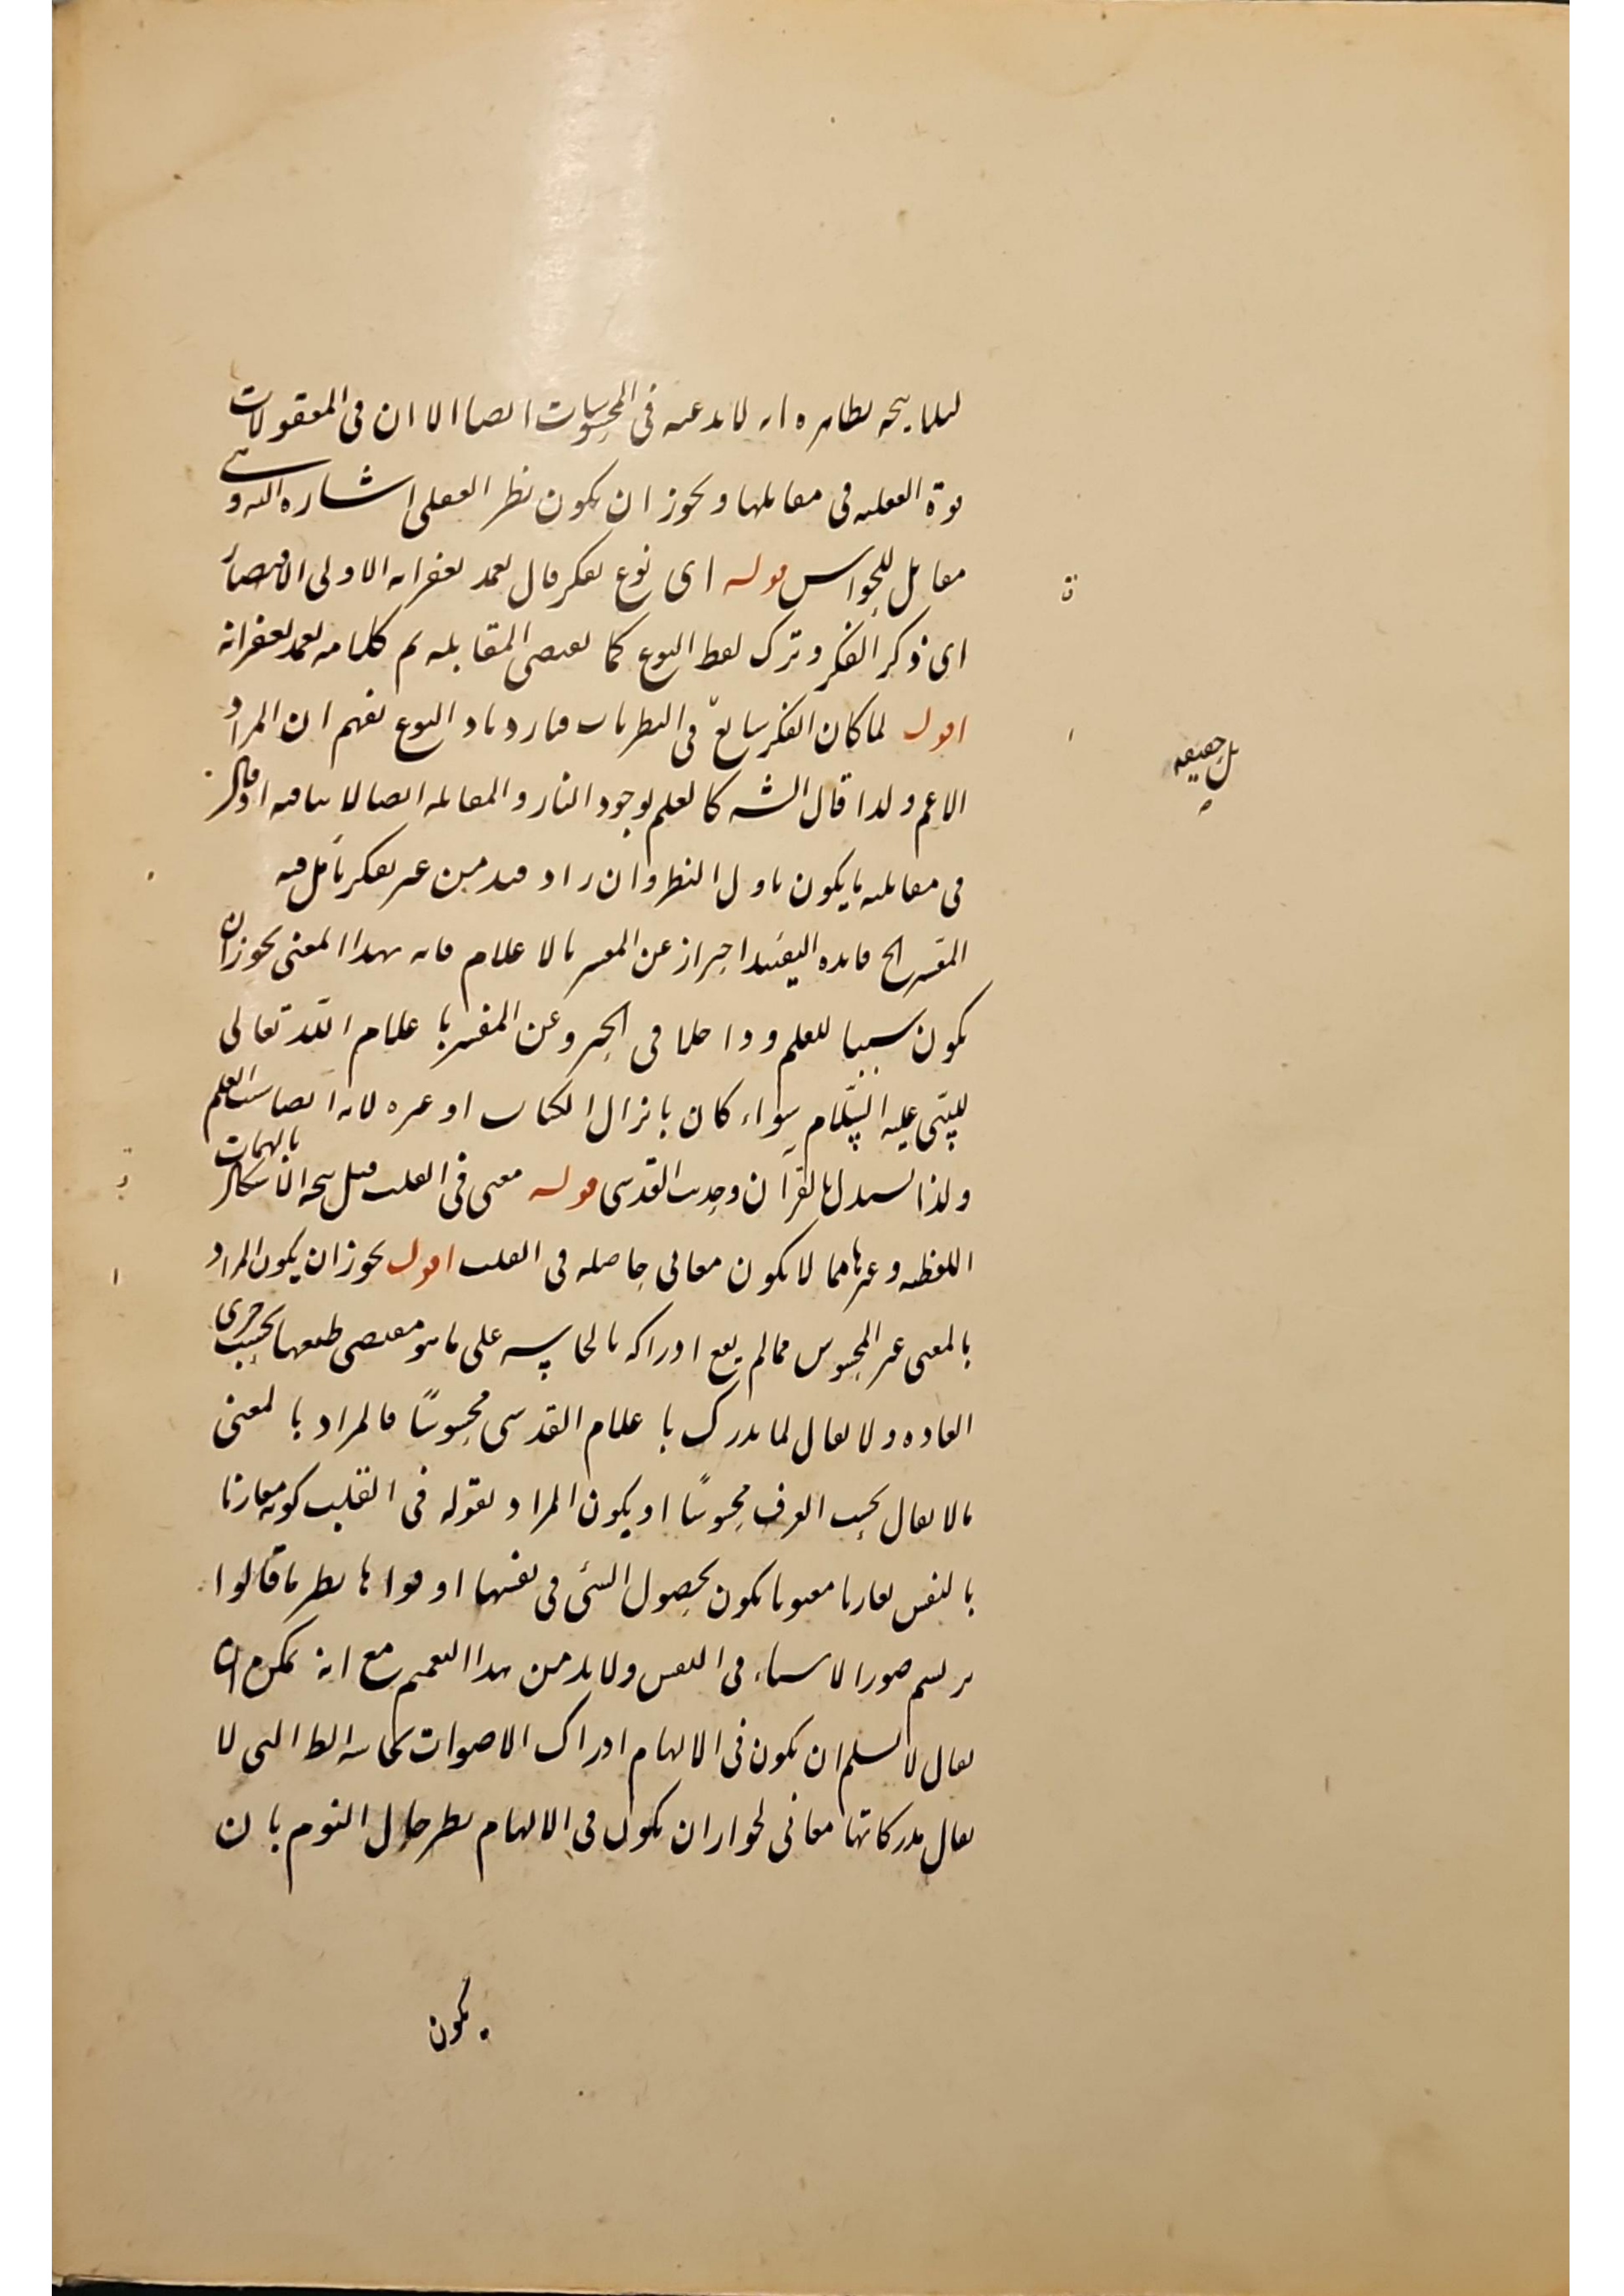 لىلا يىجه بظاهره انه لا بد عنه فى المحسوسات ايضا الا ان فى المعقولات
قوة العقليه فى مقابلها ويجوز ان يكون نظر العقلى اشاره اليه وهى
مقابل للحواس قوله اى نوع تفكر قال تغمد بغفرانه الاولى الاقتصار
اى ذكر الفكر وترك لفظ النوع كما يقتضى المقابله تم كلامه تغمد بغفرانه
اقول لما كان الفكر شايع فى النظريات فبازدياد النوع يفهم ان المراد
الاعم ولذا قال الشه كالعلم بوجود النار والمقابله ايضا لا ينافيه اذ قال
فى مقابلته ما يكون باول النظر وان زاد قيد من غير تفكر تأمل فيه
المفسر الخ فايده التقييد احتراز عن المفسر بالاعلام فانه بهذا المعنى يجوز ان
يكون سببا للعلم وداخلا فى الخبر وعن المفسر باعلام الله تعالى
للنبى عليه السلام سواء كان بانزال الكتاب او غيره لانه ايضا سبب العلم
ولذا يستدل بالقرآن وحديث القدسى قوله معنى فى القلب قيل يتجه الاشكال بالهامات
اللفظيه وغيرها مما لا يكون معانى حاصله فى القلب اقول يجوز ان يكون المراد
بالمعنى غير المحسوس مما لم يقع ادراكه بالحاسه على ما هو مقتضى طبعها بحسب جرى
العاده ولا يقال لما يدرك باعلام القدسى محسوسًا فالمراد بالمعنى
ما لا يقال بحسب العرف محسوسًا او يكون المراد بقوله فى القلب كونه مقارنا
بالنفس تقارنا معنويا يكون بحصول الشئ فى نفسها او قواها نظير ما قالوا
يرتسم صور الاشياء فى النفس ولا بد من هذا التعميم مع انه يمكن ان
يقال لا نسلم ان يكون فى الالهام ادراك الاصوات بحاسة التى لا
يقال مدركاتها معانى لجواز ان يكون فى الالهام نظير حال النوم بان
يكون
بل حقيقه